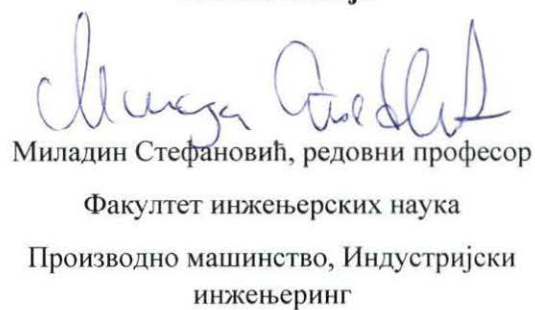 Миладин Стефановић, редовни професор
Факултет инжењерских наука
Производно машинство, Индустријски
инжењеринг